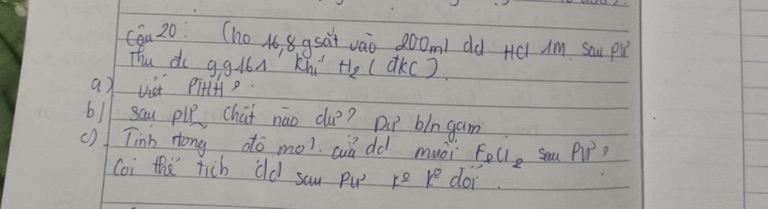 Câu 20: Cho 16,8 g sắt vào 200ml dd HCl 1M. sau pư
Thu đc 9,9161 khí H2 (đkc).
a) viết PTHH?
b) sau pư chất nào dư? Dư b/n gam
c) Tính nồng độ mol. của dd muối FeCl2 sau Pư?
Coi thể tích dd sau Pư ko ko đổi.